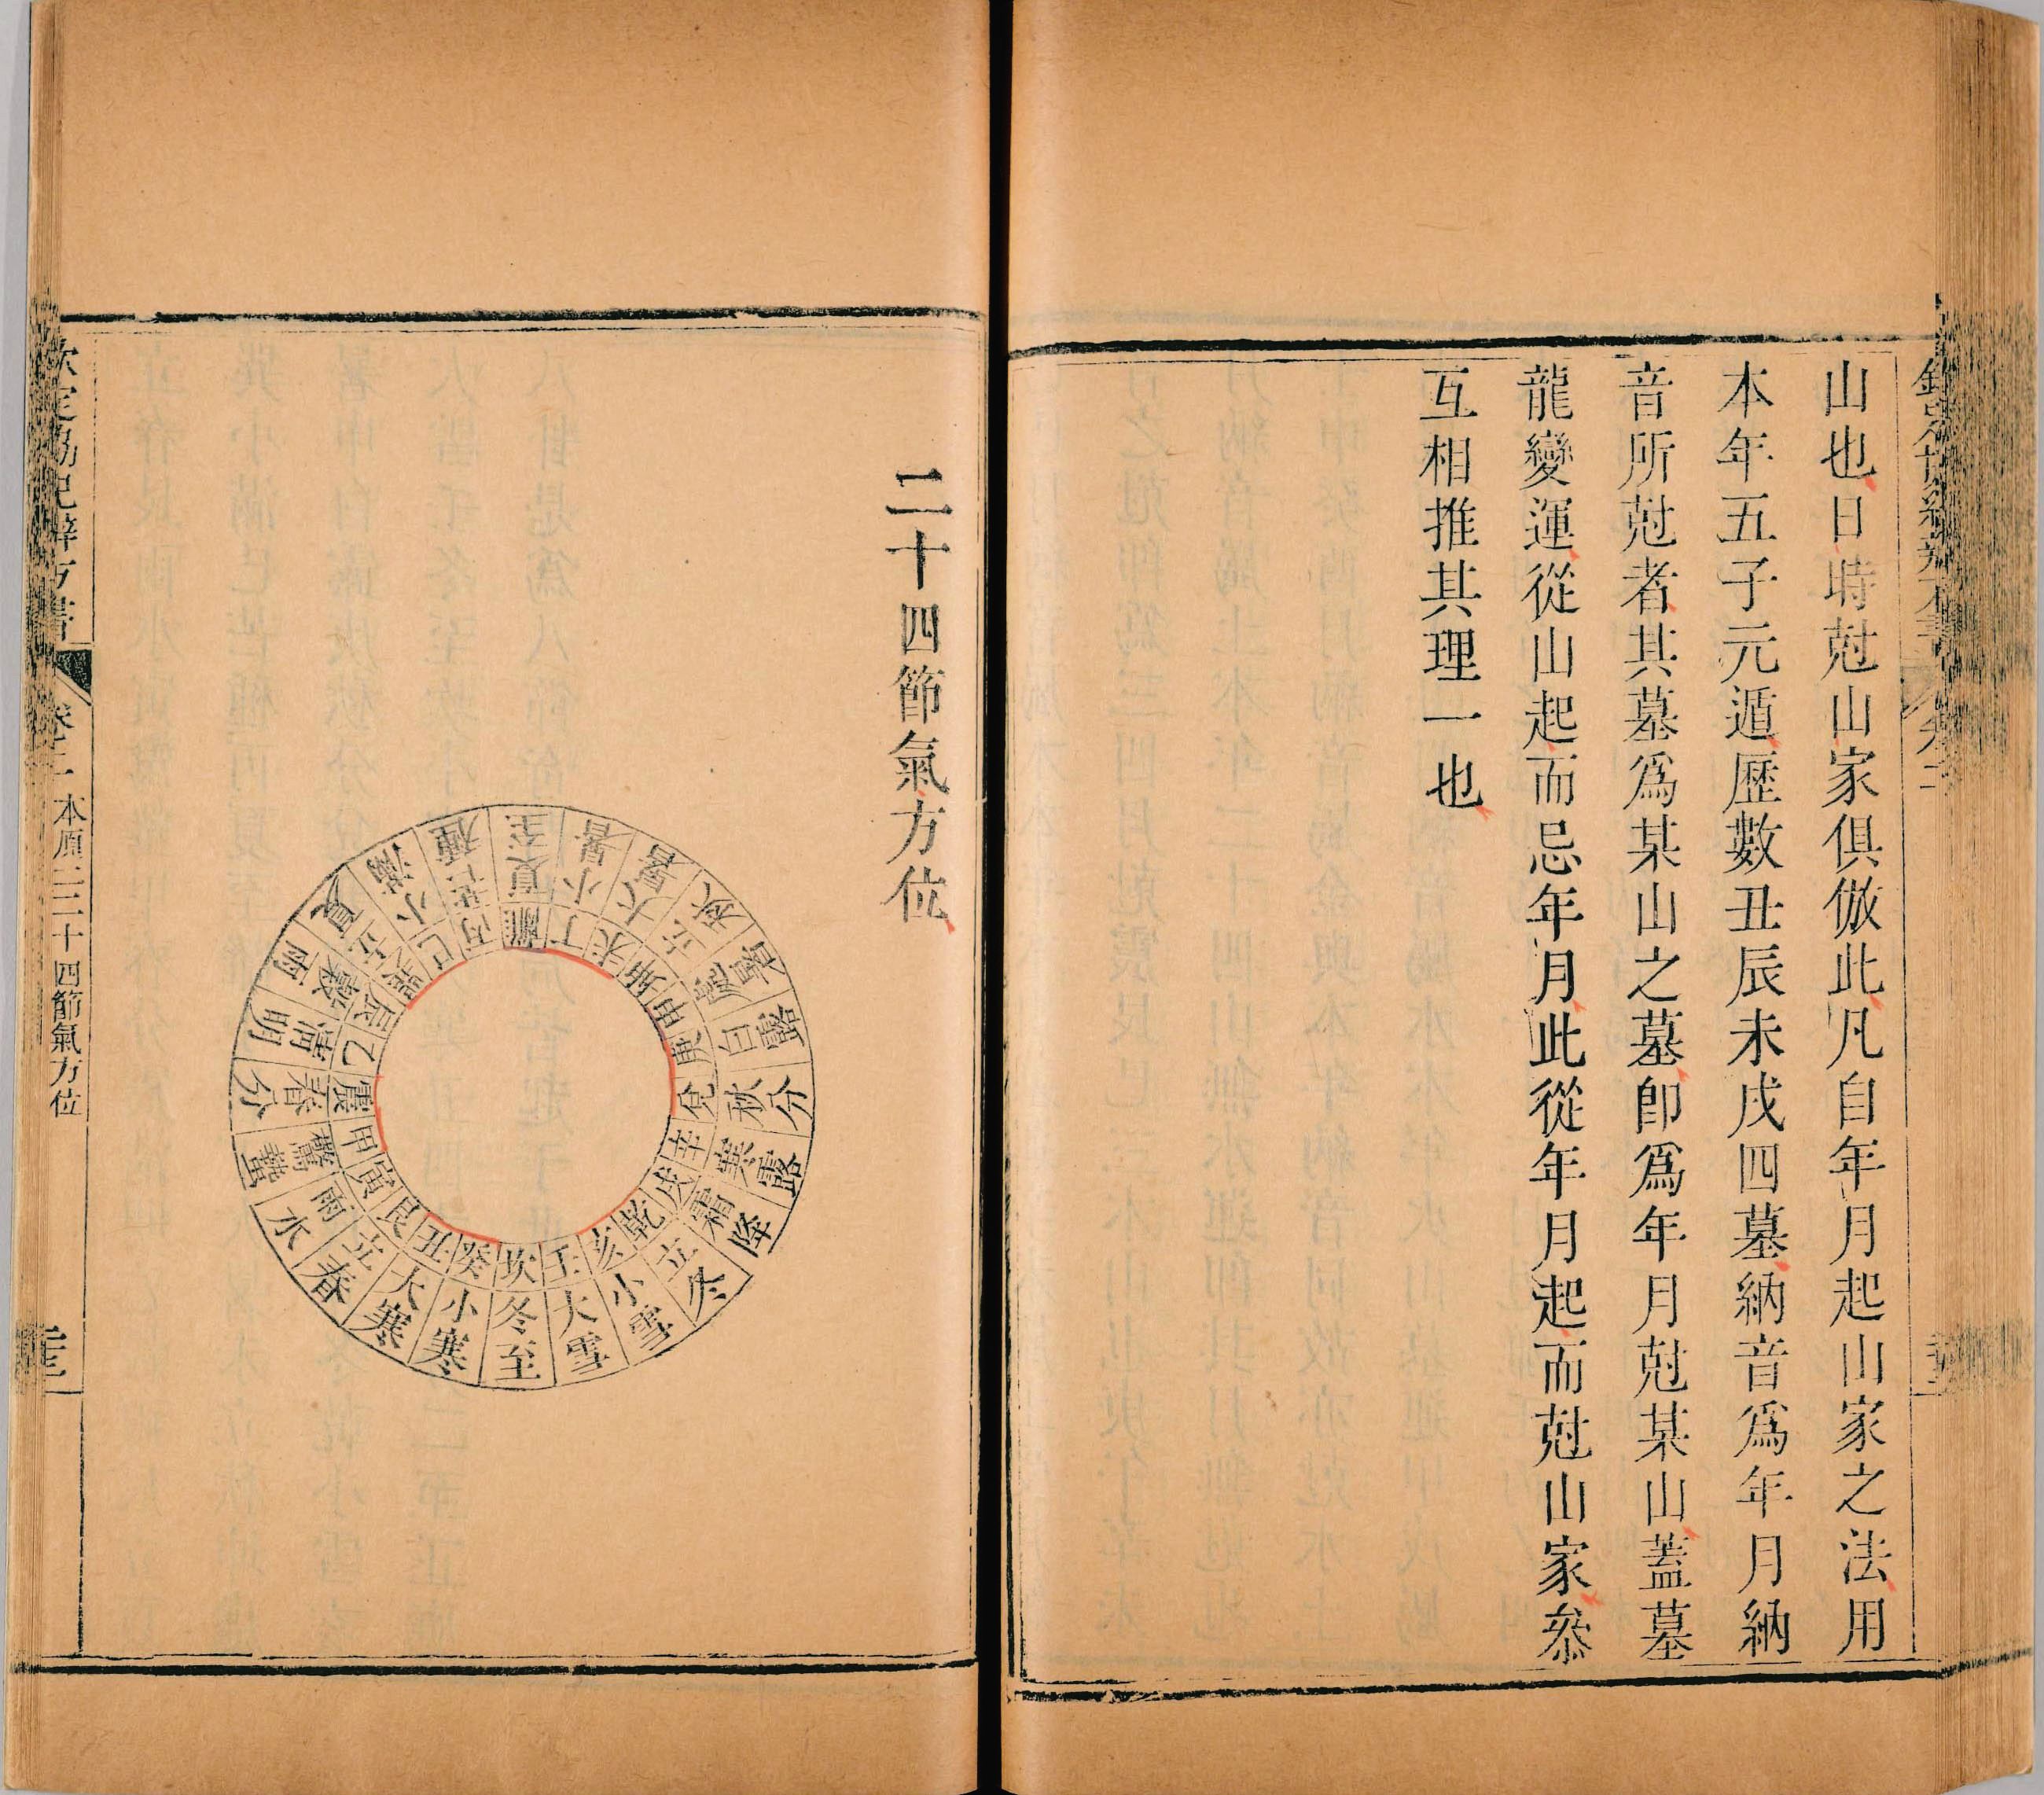 山也日時尅山家俱倣此凡自年月起山家之法用
本年五子元遁歷數丑辰未戌四墓納音爲年月納
音所尅者其墓爲某山之墓卽爲年月尅某山蓋墓
龍變運從山起而忌年月此從年月起而尅山家叅
互相推其理一也
二十四節氣方位
夏至 離
小暑 丁
大暑 未
立秋 坤
處暑 申
白露 庚
秋分 兌
寒露 辛
霜降 戌
立冬 乾
小雪 亥
大雪 壬
冬至 坎
小寒 癸
大寒 丑
立春 艮
雨水 寅
驚蟄 甲
春分 震
清明 乙
穀雨 辰
立夏 巽
小滿 巳
芒種 丙
欽定協紀辨方書
卷二 本原二 二十四節氣方位